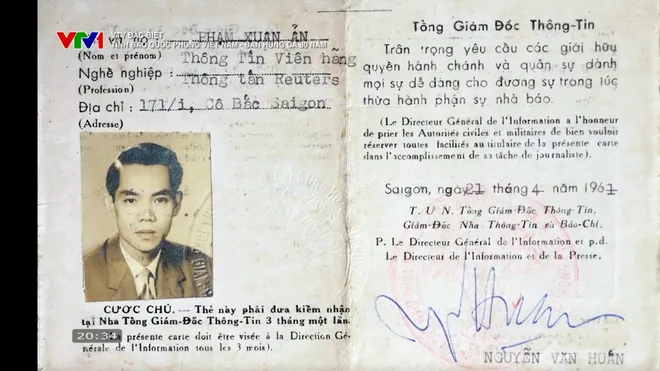 VTV1
VTV ĐẶC BIỆT
TÌNH BÁO QUỐC PHÒNG VIỆT NAM - BẢN HÙNG CA 80 NĂM
PHẠM XUÂN ẨN
(Nom et prénom)
Thông Tín Viên hãng
Nghề nghiệp :
Thông tấn Reuters
(Profession)
Địa chỉ : 171/i, Cô Bắc Saigon
(Adresse)
CƯỚC CHÚ. — Thẻ này phải đưa kiểm nhận
tại Nha Tổng Giám-Đốc Thông-Tin 3 tháng một lần.
présente carte doit être visée à la Direction Gé-
nérale de l'Information tous les 3 mois).
20:34
Tổng Giám Đốc Thông-Tin
Trân trọng yêu cầu các giới hữu
quyền hành chánh và quân sự dành
mọi sự dễ dàng cho đương sự trong lúc
thừa hành phận sự nhà báo.
(Le Directeur Général de l'Information a l'honneur
de prier les Autorités civiles et militaires de bien vouloir
réserver toutes facilités au titulaire de la présente carte
dans l'accomplissement de sa tâche de journaliste).
Saigon, ngày 21 tháng 4 năm 1961
T. U N. Tổng Giám-Đốc Thông-Tin,
Giám-Đốc Nha Thông-Tin và Báo-Chí.
P. Le Directeur Général de l'Information et p.d.
Le Directeur de l'Information et de la Presse,
NGUYỄN VĂN HUẤN